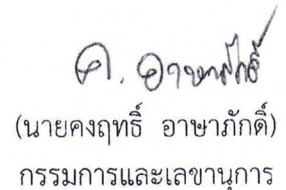 ค. อาษาภักดิ์
(นายคงฤทธิ์ อาษาภักดิ์)
กรรมการและเลขานุการ